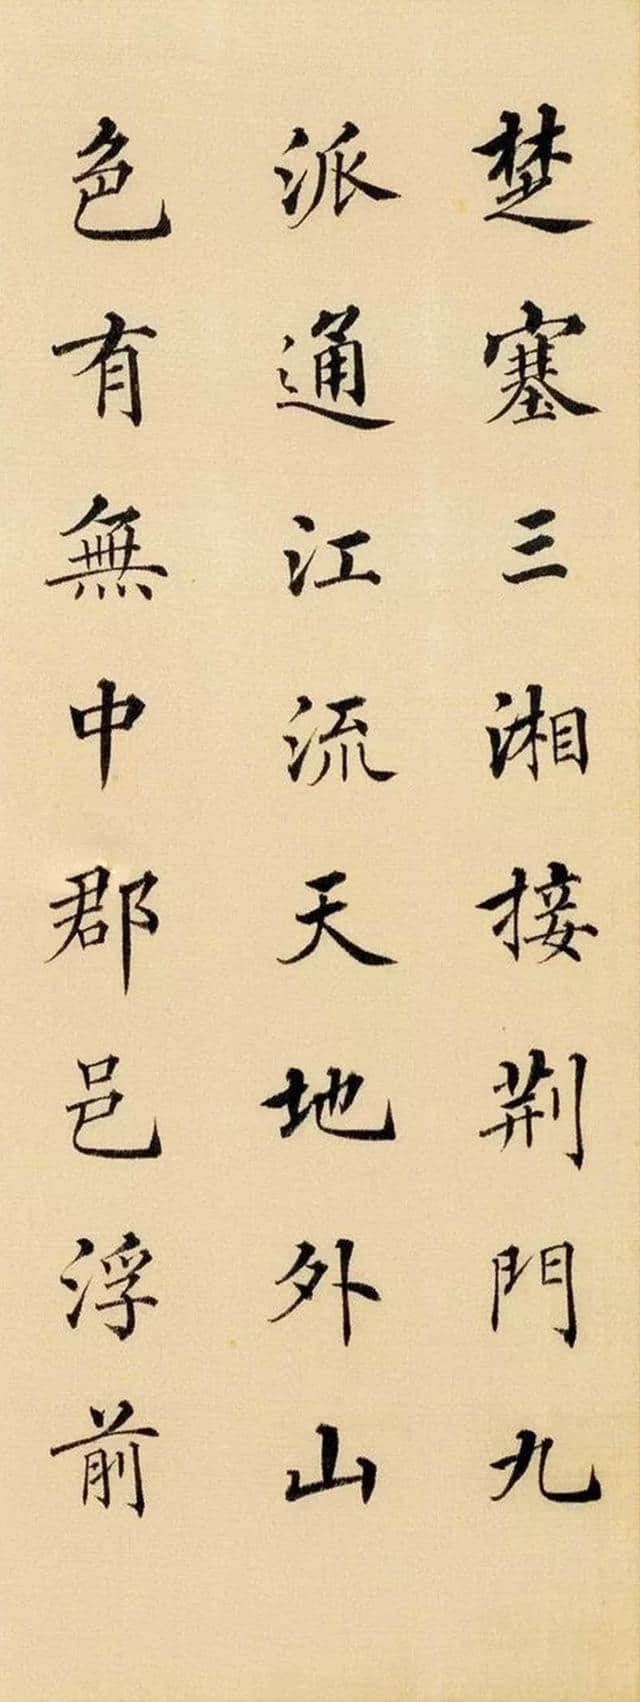 楚塞三湘接荆門九
派通江流天地外山
色有無中郡邑浮前